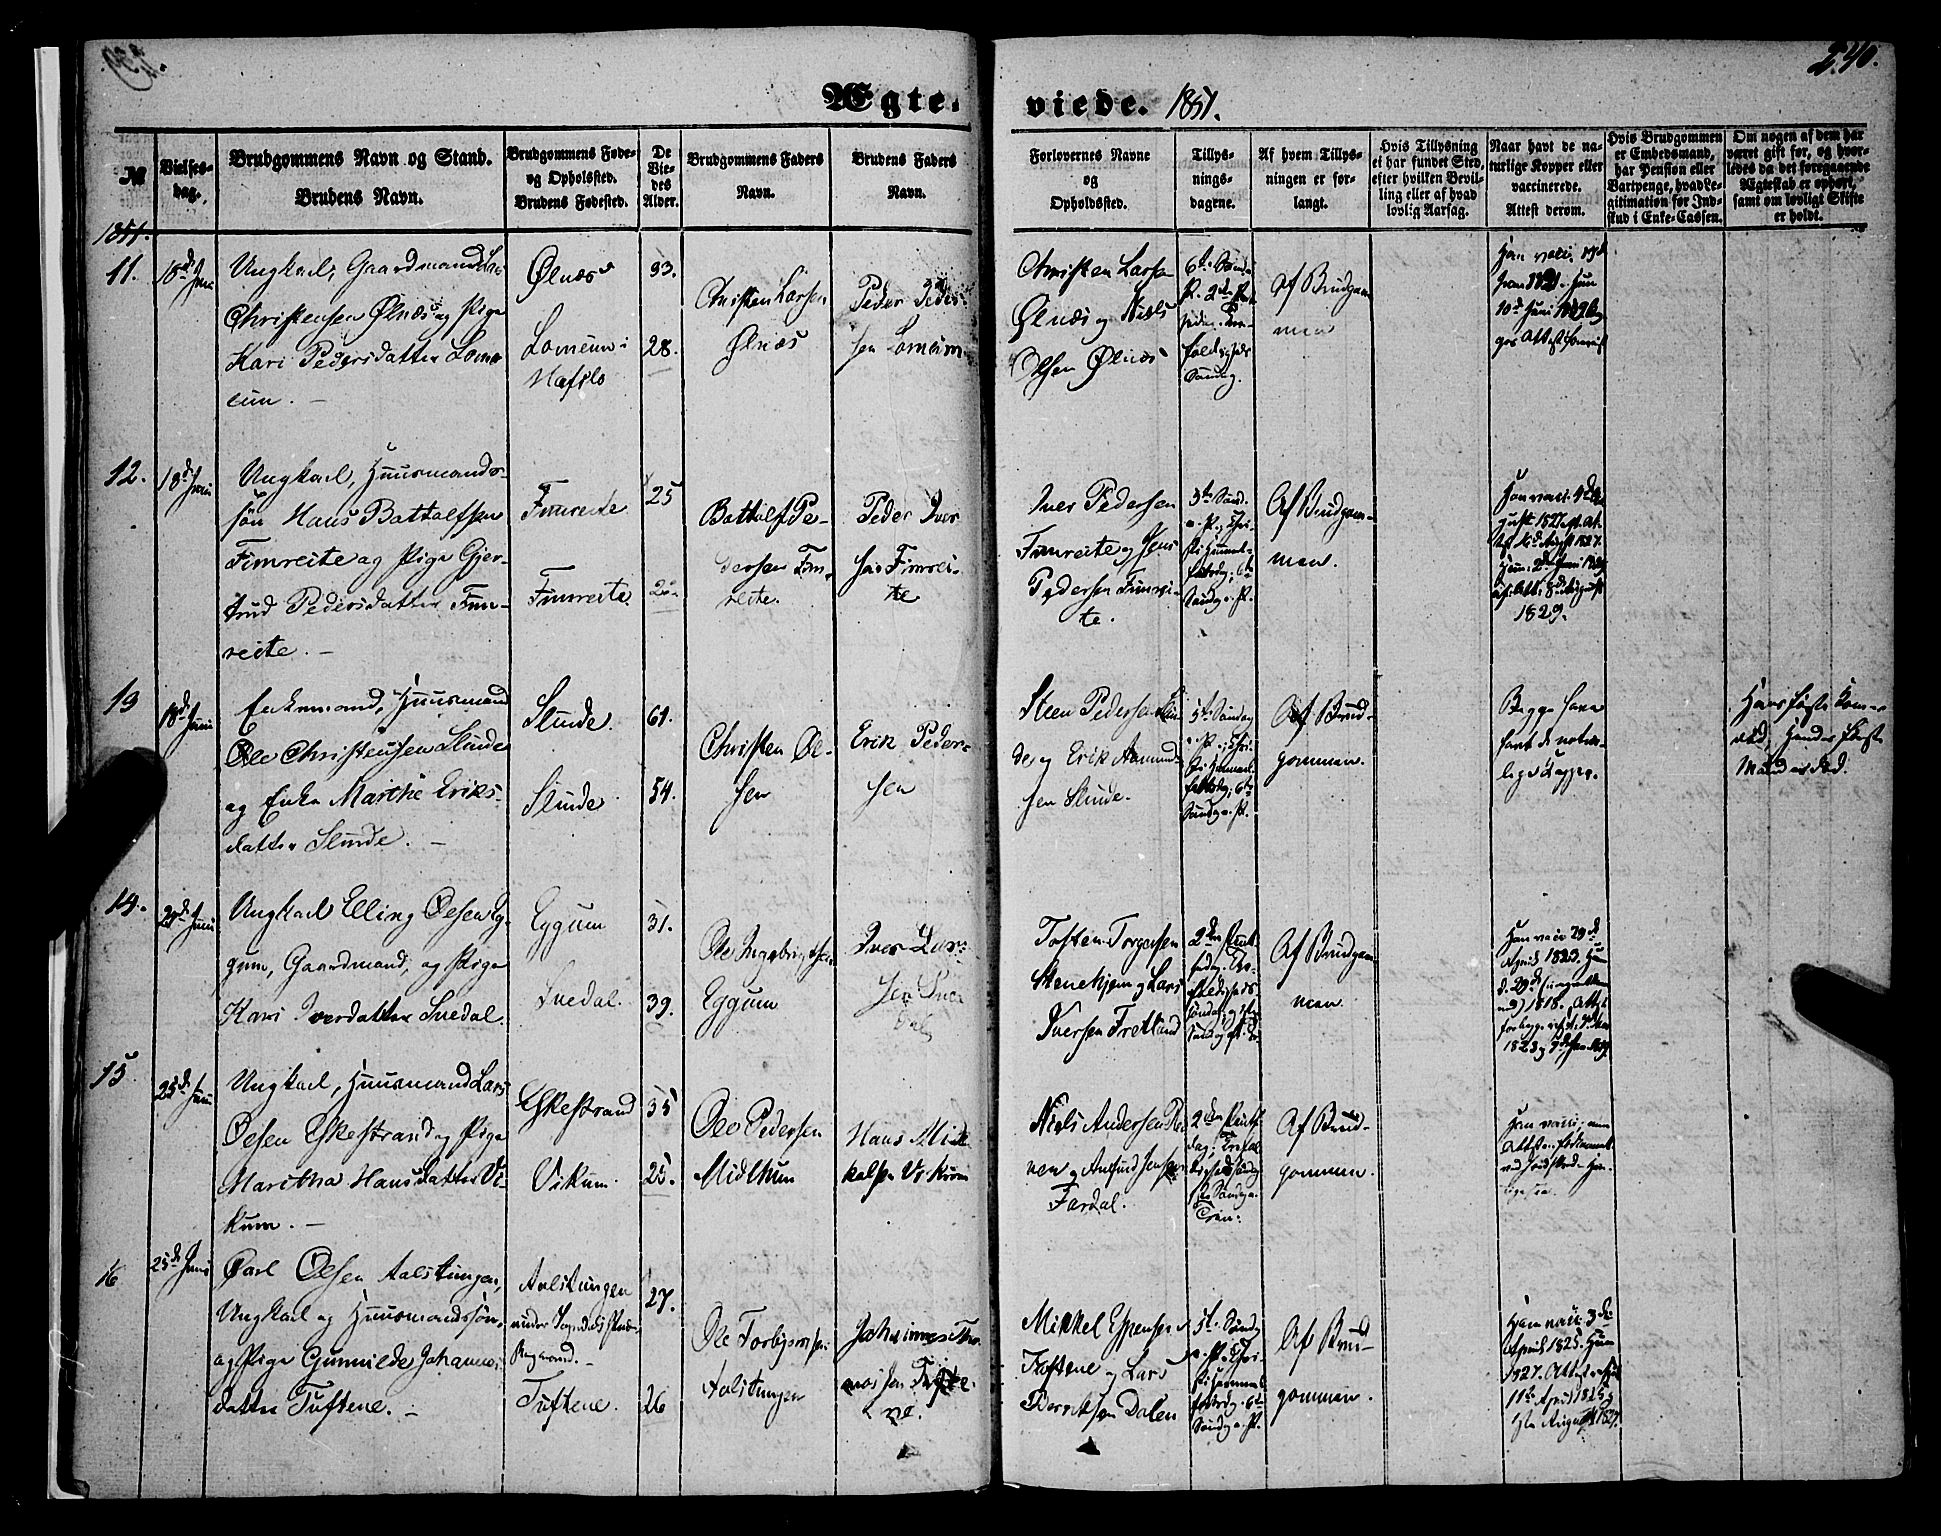 240.
Ægte-
viede. 1851.
№
Vielses-
dag.
Brudgommens Navn og Stand.
Brudens Navn.
Brudgommens Føde-
og Opholssted.
Brudens Fødested.
De
Vie-
des
Alder.
Brudgommens Faders
Navn.
Brudens Faders
Navn.
Forlovernes Navne
og
Opholdssted.
Tillys-
nings-
dagene.
Af hvem Tillys-
ningen er for-
langt.
Hvis Tillysning
ei har fundet Sted,
efter hvilken Bevil-
ling eller af hvad
lovlig Aarsag.
Naar havt de na-
turlige Kopper eller
vaccinerede.
Attest derom.
Hvis Brudgommen
er Embedsmand,
har Pension eller
Vartpenge, hvad Le-
gitimation for Ind-
skud i Enke-Cassen.
Om nogen af dem har
været gift før, og hvor-
ledes da det foregaaende
Ægteskab er ophørt,
samt om lovligt Skifte
er holdt.
1851.
11.
18d Juni
Ungkarl, Gaardmand Lars
Christensen Ølnæs og Pige
Kari Pedersdatter Lome
eim. -
Ølnæs
Lomeim i
Hafslo
33.
28.
Christen Larsen
Ølnæs
Peder Peder-
sen Lomeim
Christen Larsen
Ølnæs og Niels
Olsen Ølnæs
6te Sønd.
P. 2den Pin-
sedag. Tre-
foldigheds
Søndag.
Af Brudgom
men
12.
18d Juni
Ungkarl, Huusmands-
søn Hans Battalfsen
Fimreite og Pige Gjer-
trud Pedersdatter Fim-
reite. -
Fimreite
Fimreite.
25
Battalf Pe-
dersen Fim-
reite.
Peder Iver
sen Fimrei-
te
Iver Pedersen
Fimreite og Jens
Pedersen Fimrei-
te.
5te Sønd.
e. P., Chri-
sti Himmel-
fartsdag; 6te
Søndag e. P.
Af Brudgom-
men.
1829.
13
18d Juni
Enkemand, Huusmand
Ole Christensen Slinde
og Enke Marthe Eriks-
datter Slinde. -
Slinde.
Slinde
61.
54.
Christen Ol-
sen
Erik Peder-
sen
Steen Pedersen Slin
de og Erik Aamund-
sen Slinde.
5te Søndag
e. P.; Chri-
sti Himmel-
fartsdag; 6te
Søndag e. P.
Af Brud-
gommen.
Begge have
havt de natur-
lige Kopper.
Hans første Kone er
død, Hendes første
Mand er død.
14.
Juni
Ungkarl Elling Olsen Eg-
gum, Gaardmand, og Pige
Kari Iversdatter Snedal.
Eggum
Snedal.
31.
39.
Ole Ingebrigtsen
Eggum
Iver Lar-
sen Sne
dal
Torsten Torgersen
Stenehjem og Lars
Iversen Fretland
Af Brudgom
men.
15
25d Juni
Ungkarl, Huusmand Lars
Olsen Eskestrand og Pige
Maritha Hansdatter Vi-
kum. -
Eskestrand
Vikum.
35
25.
Ole Pedersen
Midthun
Hans Mik
kelsen Vikum
Niels Andersen
nen og Anfind Jensen
Fardal.
Af Brud-
gommen.
16
25d Juni
Carl Olsen Aalstungen,
Ungkarl og Huusmandssøn,
og Pige Gunnilde Johannes-
datter Tuftene. -
Aalstungen
under Sogndals Præ-
stegaard. -
Tuftene.
27.
26
Ole Torbjørnsen
Aalstungen
Johannes Tho
massen Tufte
ne.
Mikkel Espensen
Tuftene og Lars
Henriksen Dalen
5te Søndag
e. P. Chri-
sti Himmel
fartsdag. 6te
Søndag e. P.
Af Brud
gommen.
Han vacc. 3de
April 1825. Hun
1827. Attest
11te April 1825 og
August 1827.